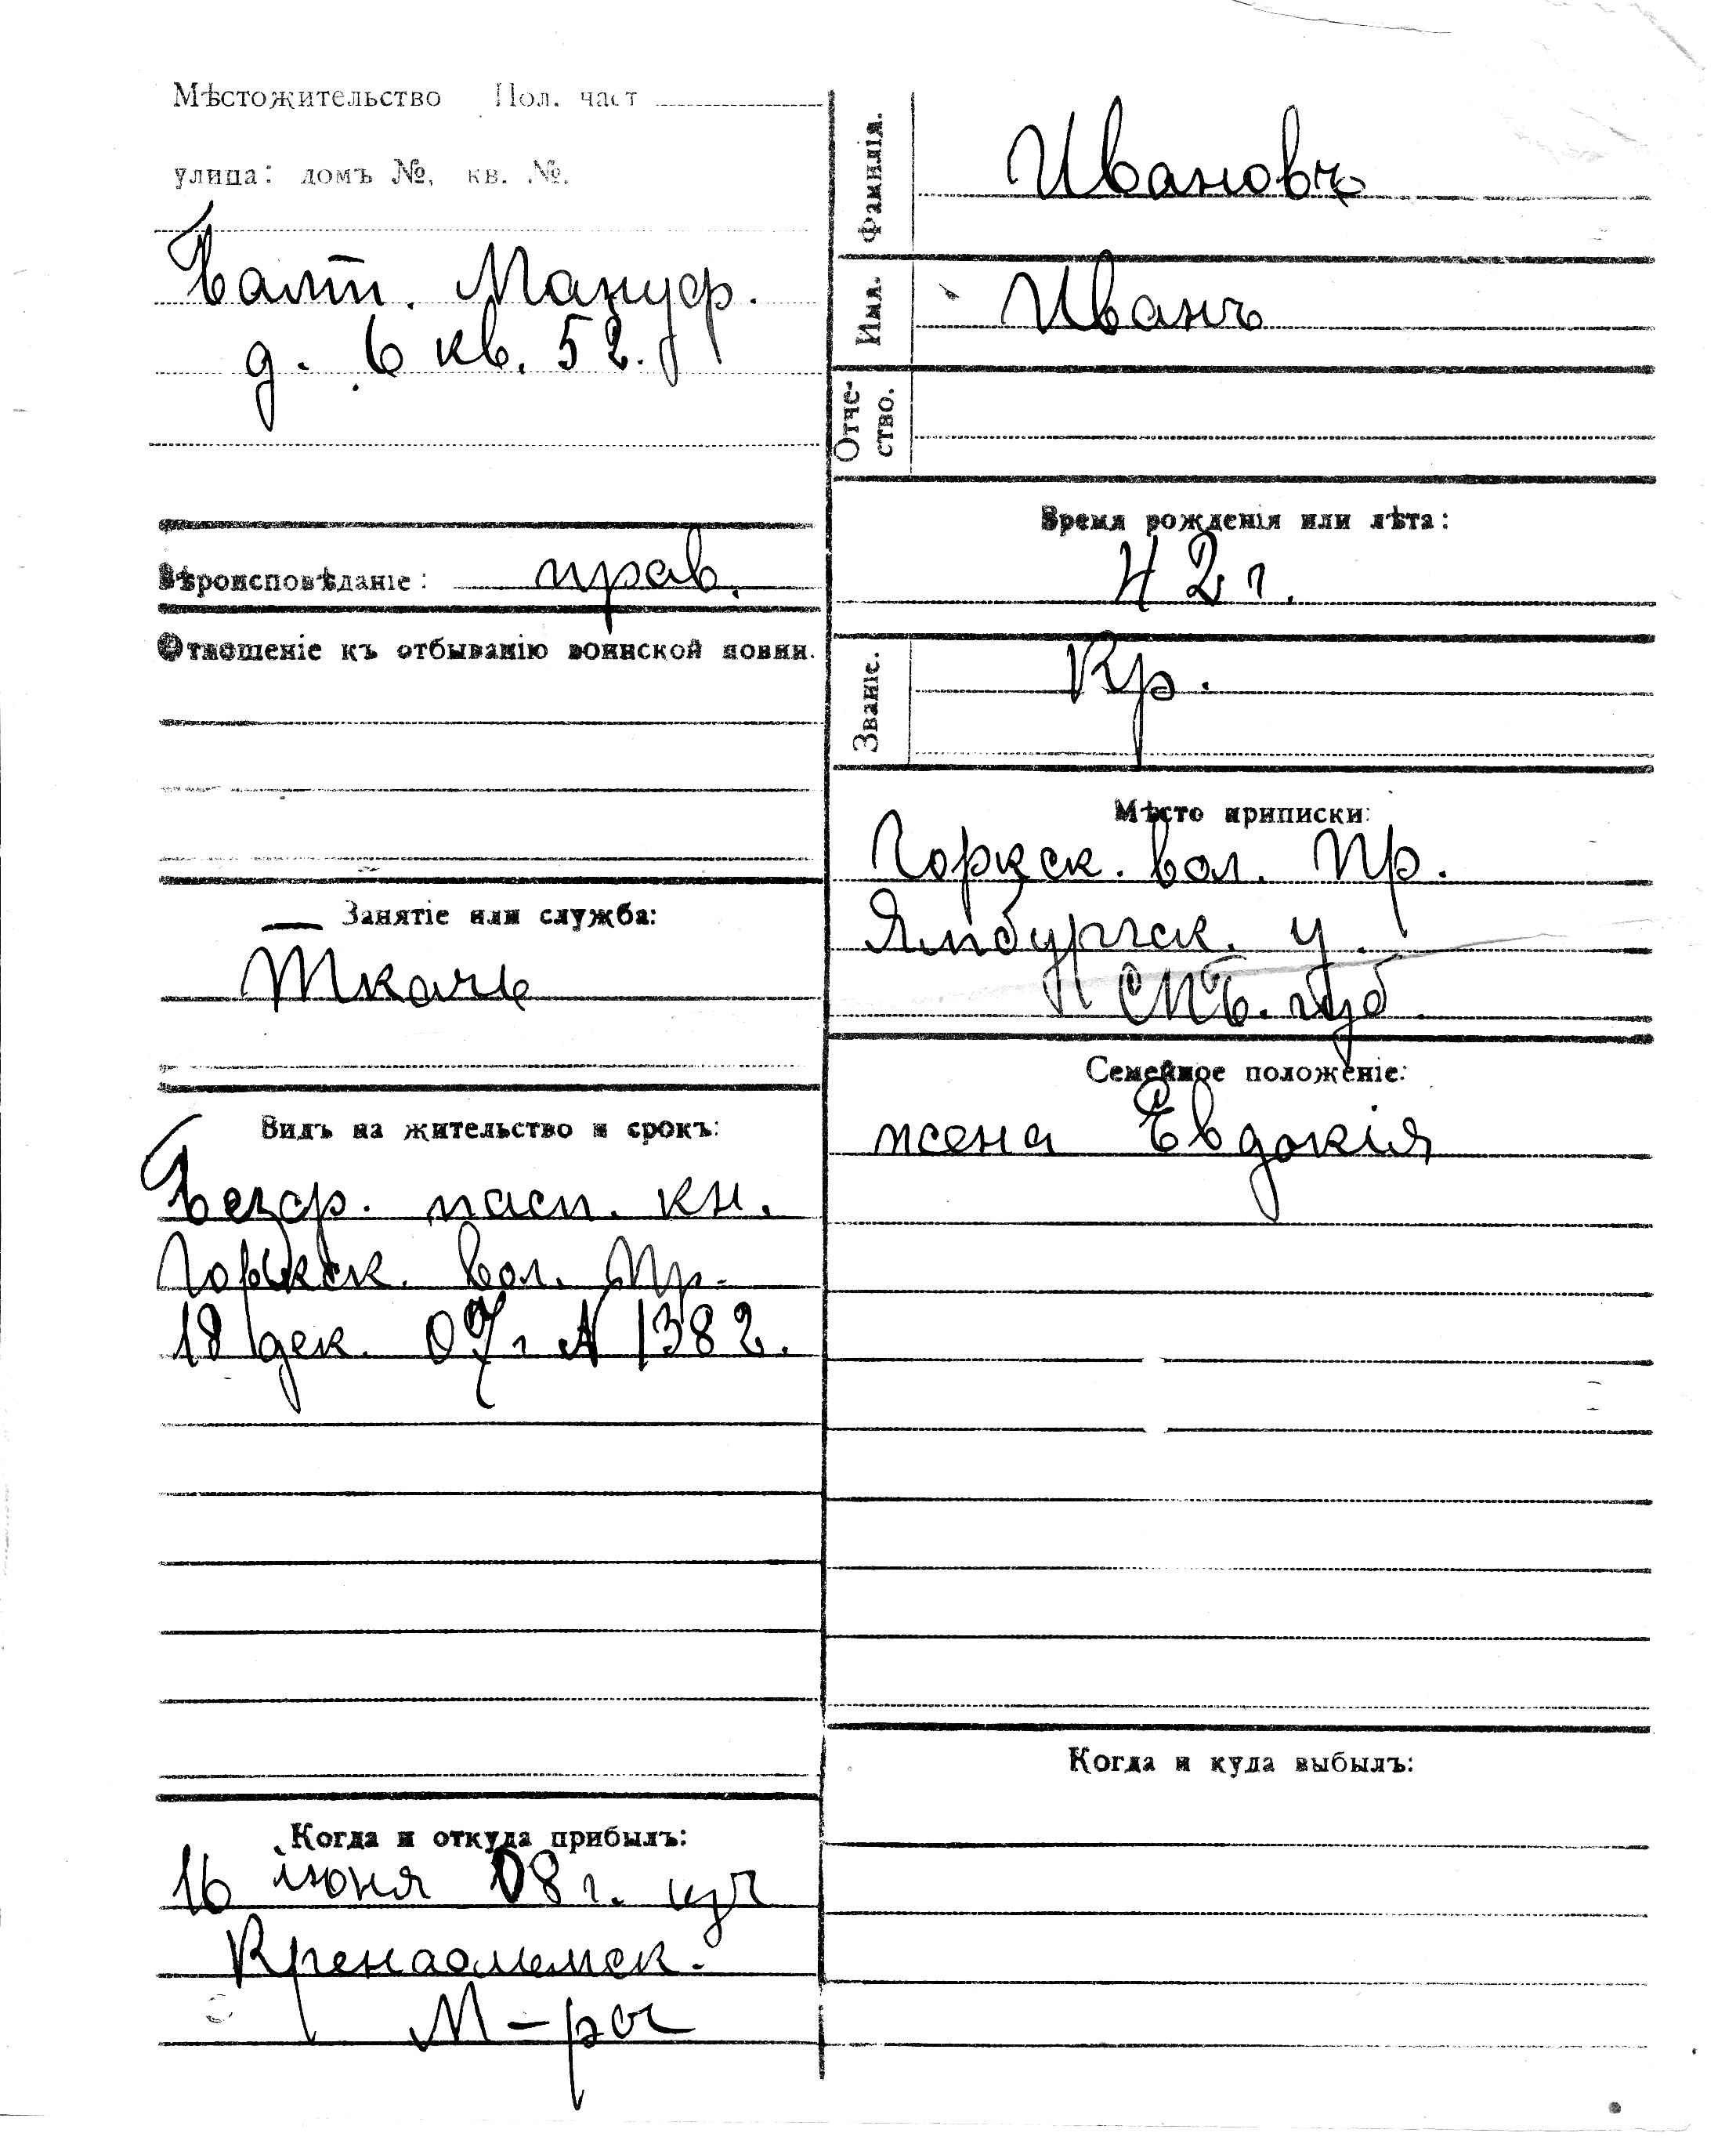 Мѣстожительство Пол. част
улица: домъ №, кв. №.
Балт. Мануф.
д. 6 кв. 52.
Вѣроисповѣданіе: прав.
Отношеніе къ отбыванію воинской повин.
Занятіе или служба:
Ткачъ
Видъ на жительство и срокъ:
Безср. пасп. кн.
вол. Пр.
18 дек. 07 г № 1382.
Когда и откуда прибылъ:
16 іюня 08 г. изъ
Кренгольмск.
М-ры
Фамилія.
Ивановъ
Имя.
Иванъ
Отче-
ство.
Время рожденія или лѣта:
42 г.
Званіе.
Кр.
Мѣсто приписки:
вол. Пр.
Ямбургск. у.
СПБ. губ.
Семейное положеніе:
жена Евдокія
Когда и куда выбылъ: